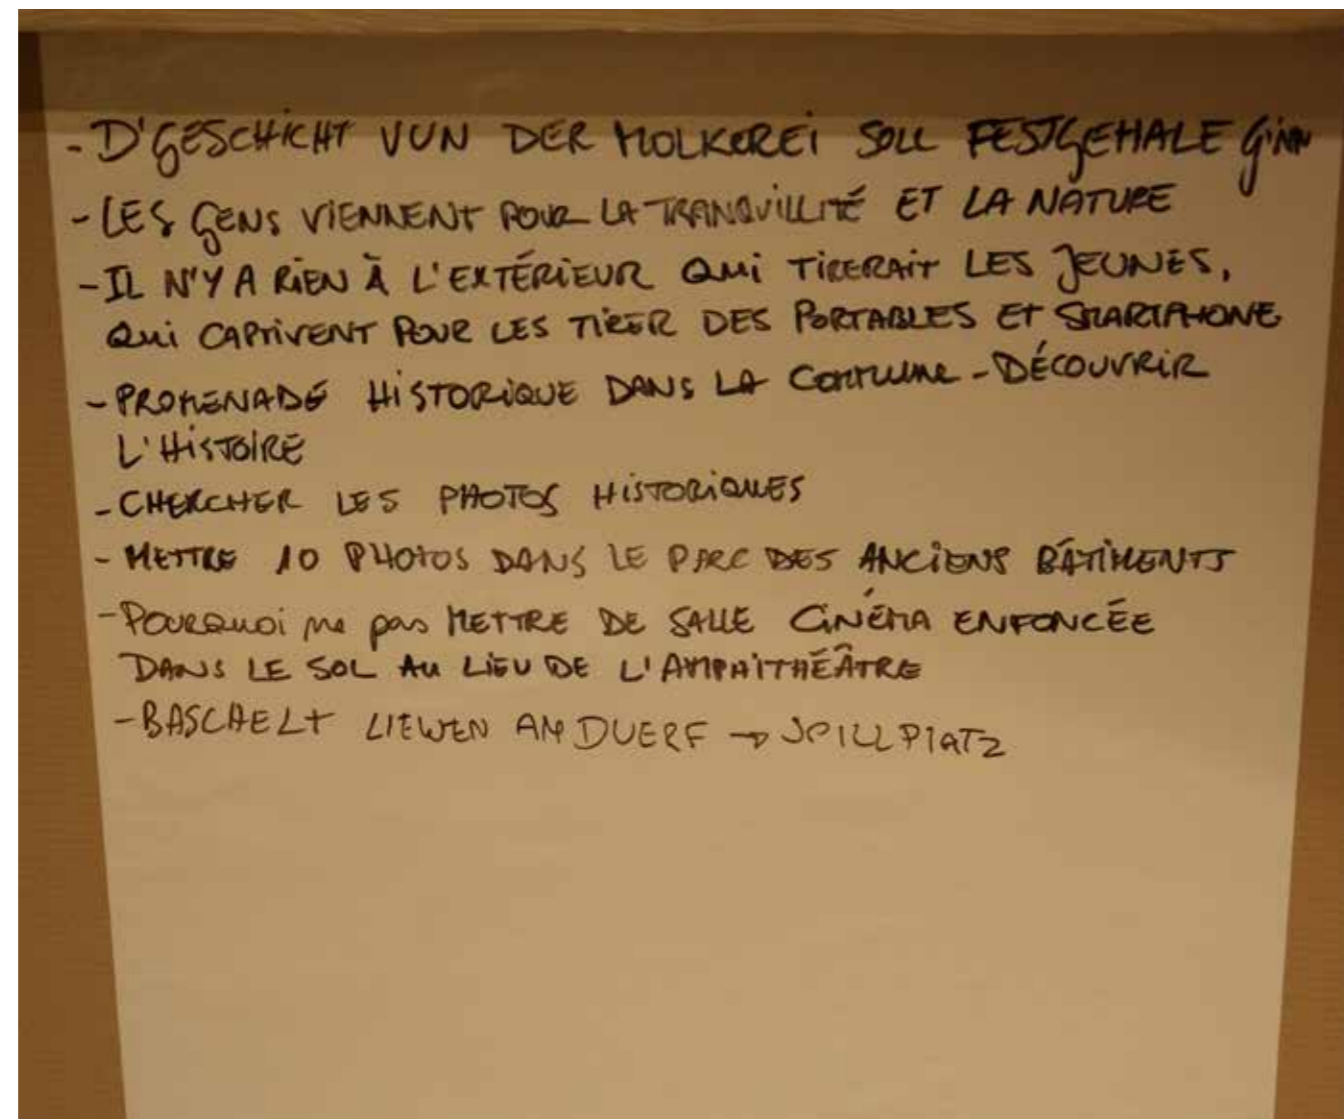 - D'GESCHICHT VUN DER MOLKEREI SOLL FESTGEHALE GINN
- LES GENS VIENNENT POUR LA TRANQUILLITÉ ET LA NATURE
- IL N'Y A RIEN À L'EXTÉRIEUR QUI TIRERAIT LES JEUNES,
QUI CAPTIVENT POUR LES TIRER DES PORTABLES ET SMARTPHONE
- PROMENADE HISTORIQUE DANS LA COMMUNE - DÉCOUVRIR
L'HISTOIRE
- CHERCHER LES PHOTOS HISTORIQUES
- METTRE 10 PHOTOS DANS LE PARC DES ANCIENS BÂTIMENTS
- POURQUOI ne pas METTRE DE SALLE CINÉMA ENFONCÉE
DANS LE SOL AU LIEU DE L'AMPHITHÉÂTRE
- BASCHELT LIEWEN AM DUERF → SPILLPLATZ